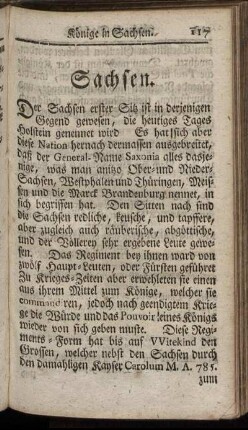 Könige in Sachsen. 117
Sachsen.
Der Sachsen erster Sitz ist in derjenigen
Gegend gewesen, die heutiges Tages
Holstein genennet wird Es hat sich aber
diese Nation hernach dermassen ausgebreitet,
daß der General-Name Saxonia alles dasje-
nige, was man anitzo Ober- und Nieder-
Sachsen, Westphalen und Thüringen, Meis-
sen und die Marck Brandenburg nennet, in
sich begriffen hat. Den Sitten nach sind
die Sachsen redliche, keusche, und tapffere,
aber zugleich auch räuberische, abgöttische,
und der Völlerey sehr ergebene Leute gewe-
sen. Das Regiment bey ihnen ward von
zwölf Haupt-Leuten, oder Fürsten geführet
Zu Krieges-Zeiten aber erwehleten sie einen
aus ihrem Mittel zum Könige, welcher sie
commandiren, jedoch nach geendigtem Krie-
ge die Würde und das Pouvoir eines Königs
wieder von sich geben muste. Diese Regi-
ments-Form hat bis auf VVitekind den
Grossen, welcher nebst den Sachsen durch
den damahligen Kayser Carolum M. A. 785.
zum